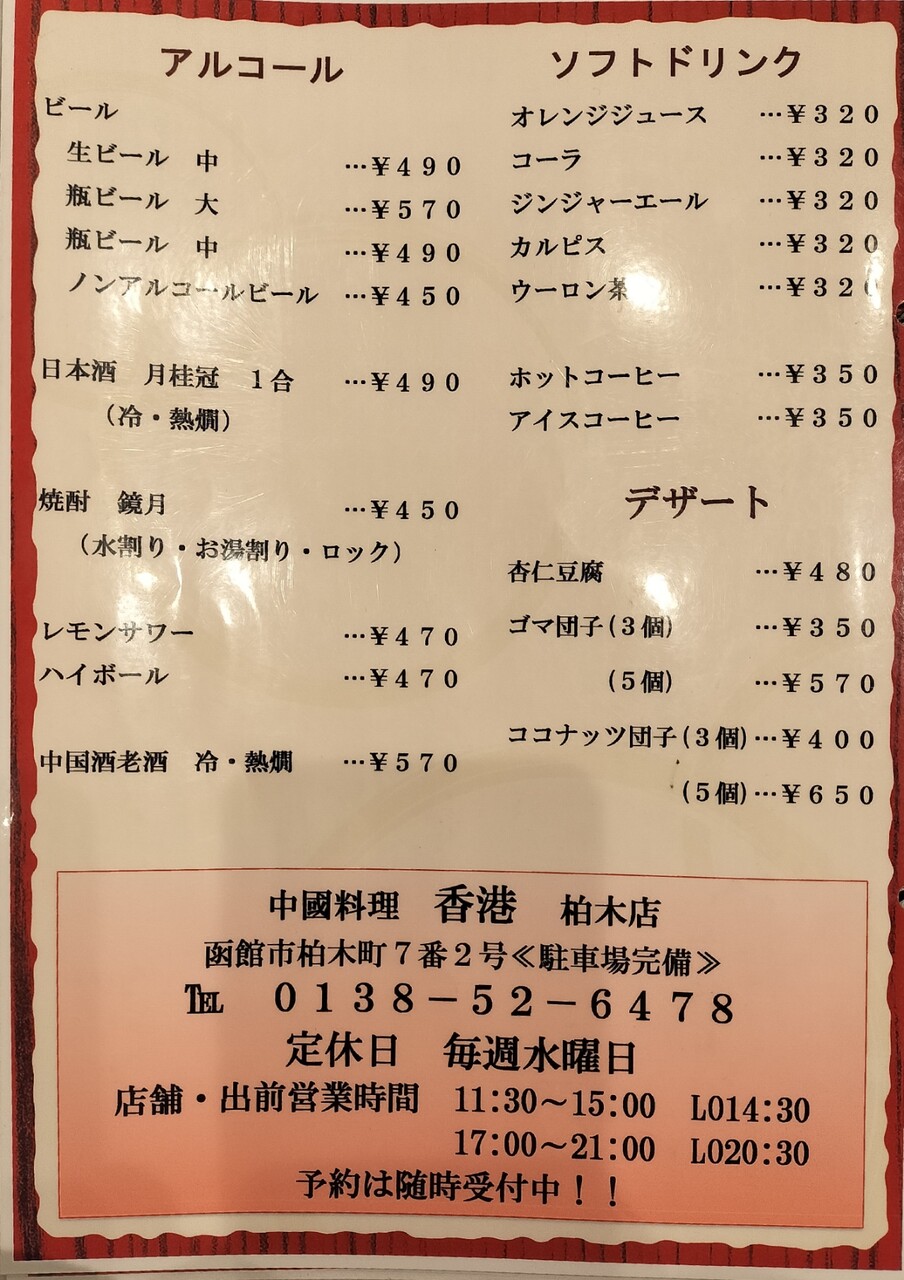 アルコール
ビール
生ビール 中 …¥490
瓶ビール 大 …¥570
瓶ビール 中 …¥490
ノンアルコールビール …¥450
日本酒 月桂冠 1合 …¥490
（冷・熱燗）
焼酎 鏡月 …¥450
（水割り・お湯割り・ロック）
レモンサワー …¥470
ハイボール …¥470
中国酒老酒 冷・熱燗 …¥570
ソフトドリンク
オレンジジュース …¥320
コーラ …¥320
ジンジャーエール …¥320
カルピス …¥320
ウーロン茶 …¥320
ホットコーヒー …¥350
アイスコーヒー …¥350
デザート
杏仁豆腐 …¥480
ゴマ団子(3個) …¥350
(5個) …¥570
ココナッツ団子(3個)…¥400
(5個)…¥650
中國料理 香港 柏木店
函館市柏木町7番2号≪駐車場完備≫
℡ 0138－52－6478
定休日 毎週水曜日
店舗・出前営業時間 11:30～15:00 LO14:30
17:00～21:00 LO20:30
予約は随時受付中！！